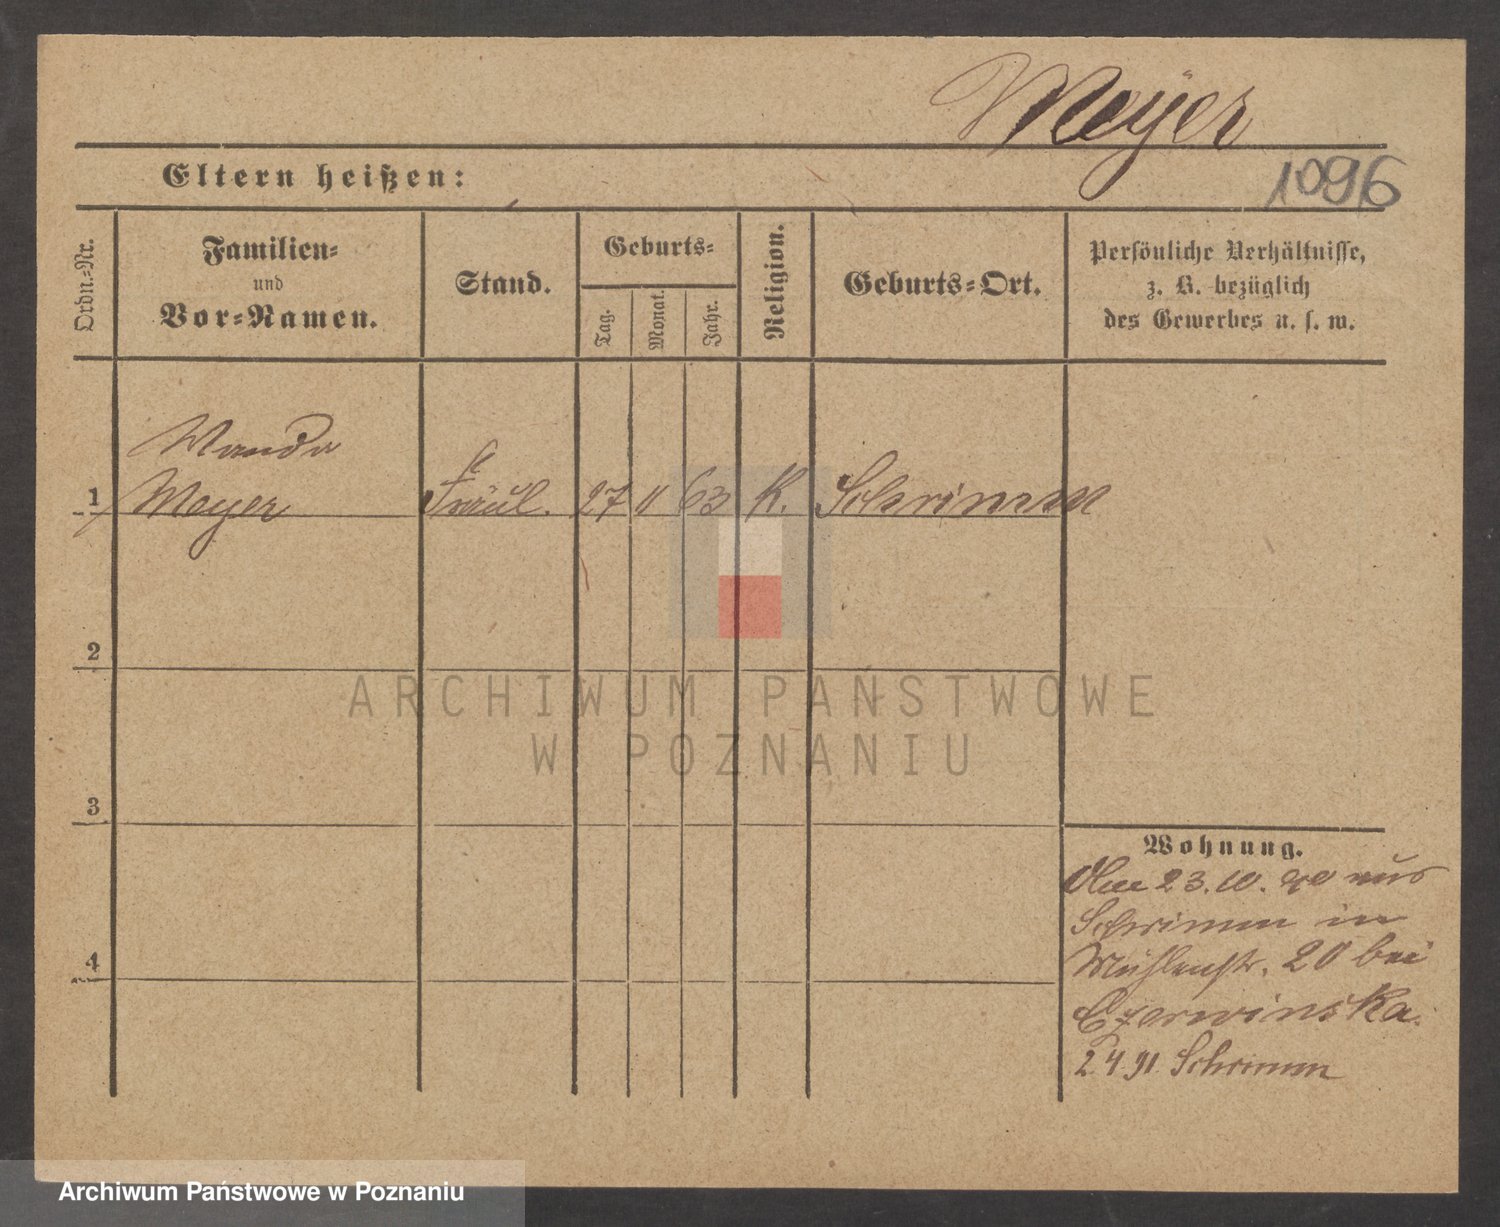 Meÿer
1096
Eltern heißen:
Ordn.=Nr.
Familien=
und
Vor=Namen.
Stand.
Geburts=
Tag.
Monat.
Jahr.
Religion.
Geburts=Ort.
Persönliche Verhältnisse,
z. B. bezüglich
des Gewerbes u. s. w.
Wanda
1 Meyer Fräul. 27 11 63 K. Schrimm
2
3
4
Wohnung.
Am 23.10.90 aus
Schrimm in
Mühlenstr. 20 bei
Czerwinska.
2 4 91 Schrimm
ARCHIWUM PAŃSTWOWE
W POZNANIU
Archiwum Państwowe w Poznaniu